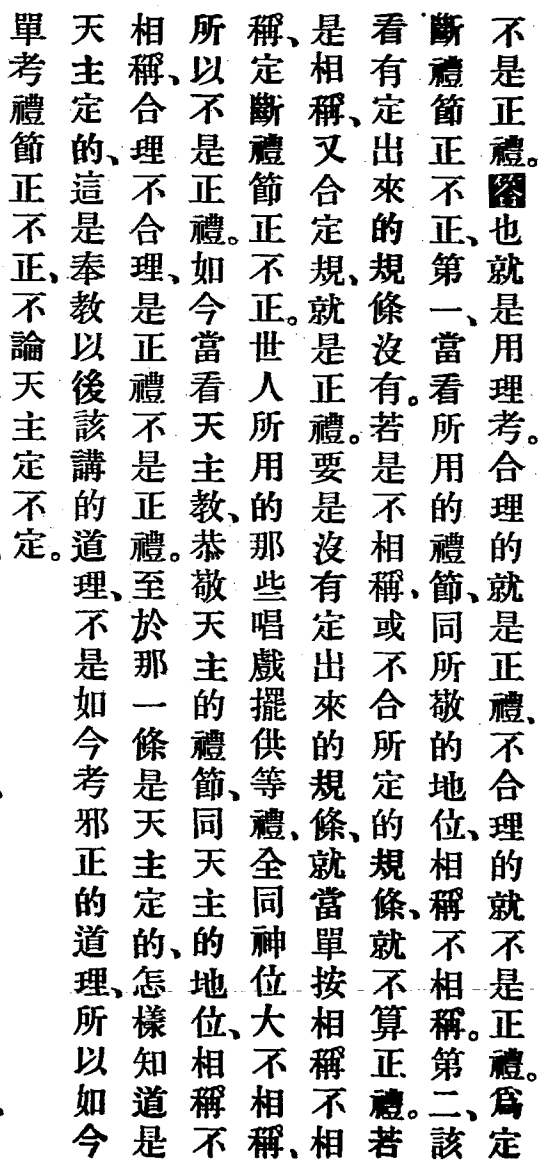 不是正禮。答也就是用理考。合理的就是正禮、不合理的就不是正禮。爲定
斷禮節正不正、第一、當看所用的禮節、同所敬的地位、相稱不相稱。第二、該
看有定出來的規條沒有。若是不相稱、或不合所定的規條、就不算正禮。若
是相稱、又合定規、就是正禮。要是沒有定出來的規條、就當單按相稱不相
稱、定斷禮節正不正。世人所用的那些唱戲擺供等禮、全同神位大不相稱、
所以不是正禮。如今當看天主教、恭敬天主的禮節、同天主的地位、相稱不
相稱、合理不合理、是正禮不是正禮。至於那一條是天主定的、怎樣知道是
天主定的、這是奉教以後該講的道理、不是如今考邪正的道理、所以如今
單考禮節正不正、不論天主定不定。